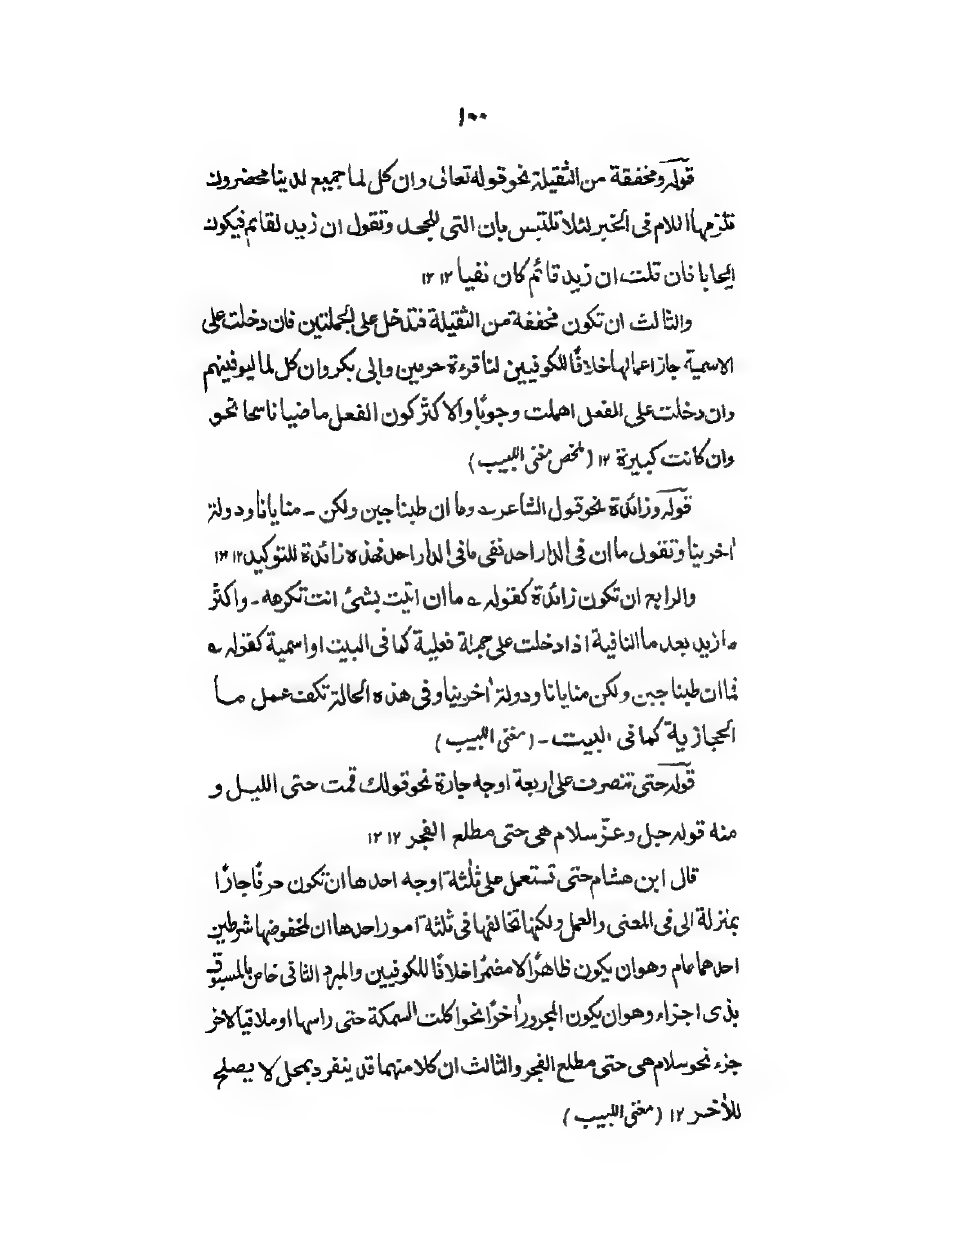 ١٠٠
قوله ومخففة من الثقيلة نحو قوله تعالى وان كل لما جميع لدينا محضرون
تلزمها اللام فى الخبر لئلا تلتبس بان التى للجحد وتقول ان زيد لقائم فيكون
ايجابا فان قلت ان زيد قائم كان نفيا ١٢ ١٢
والثالث ان تكون مخففة من الثقيلة فتدخل على الجملتين فان دخلت على
الاسمية جاز اعمالها خلافًا للكوفيين لنا قرءة حرمين وابى بكر وان كل لما ليوفينهم
وان دخلت على الفعل اهملت وجوبًا والاكثر كون الفعل ماضيا ناسخا نحو
وان كانت كبيرة ١٢ (ملخص مغنى اللبيب)
قوله وزائدة نحو قول الشاعر ؎ وما ان طبنا جبن ولكن ـ منايانا ودولة
اٰخرينا وتقول ما ان فى الدار احد نفى ما فى الدار احد فهذه زائدة للتوكيد ١٢ ١٢
والرابع ان تكون زائدة كقوله ؎ ما ان اتيت بشئ انت تكرهه ـ واكثر
ما زيد بعد ما النافية اذا دخلت على جملة فعلية كما فى البيت او اسمية كقوله ؎
فما ان طبنا جبن ولكن منايانا ودولة اٰخرينا وفى هذه الحالة تكف عمل ما
الحجازية كما فى البيت ـ (مغنى اللبيب)
قوله حتى تنصرف على اربعة اوجه جارة نحو قولك قمت حتى الليل و
منه قوله جل وعزّ سلام هى حتى مطلع الفجر ١٢ ١٢
قال ابن هشام حتى تستعمل على ثلٰثة اوجه احدها ان تكون حرفًا جارًا
بمنزلة الى فى المعنى والعمل ولكنها تخالفها فى ثلٰثة امور احدها ان لمخفوضها شرطين
احدهما عام وهو ان يكون ظاهرًا لا مضمرًا خلافًا للكوفيين والمبرد الثانى خاص بالمسبوق
بذى اجزاء وهو ان يكون المجرور اٰخرًا نحو اكلت السمكة حتى راسها او ملاقيا لاٰخر
جزء نحو سلام هى حتى مطلع الفجر والثالث ان كلا منهما قد ينفرد بمحل لا يصلح
للاٰخر ١٢ (مغنى اللبيب)